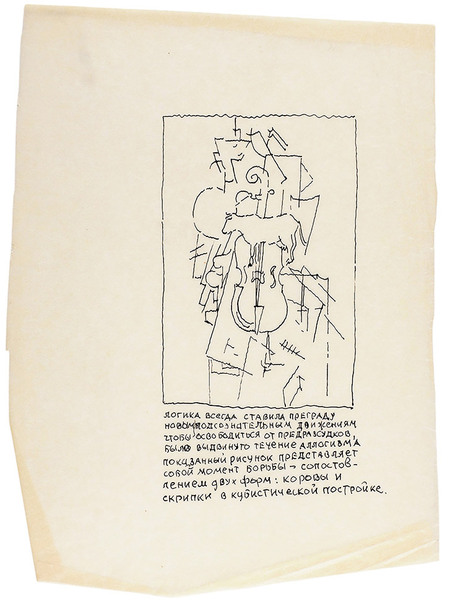 логика всегда ставила преграду
новым подсознательным движениям
чтобы освободиться от предразсудков,
было выдвинуто течение аллогизма,
показанный рисунок представляет
собой момент борьбы – сопостов-
лением двух форм: коровы и
скрипки в кубистической постройке.